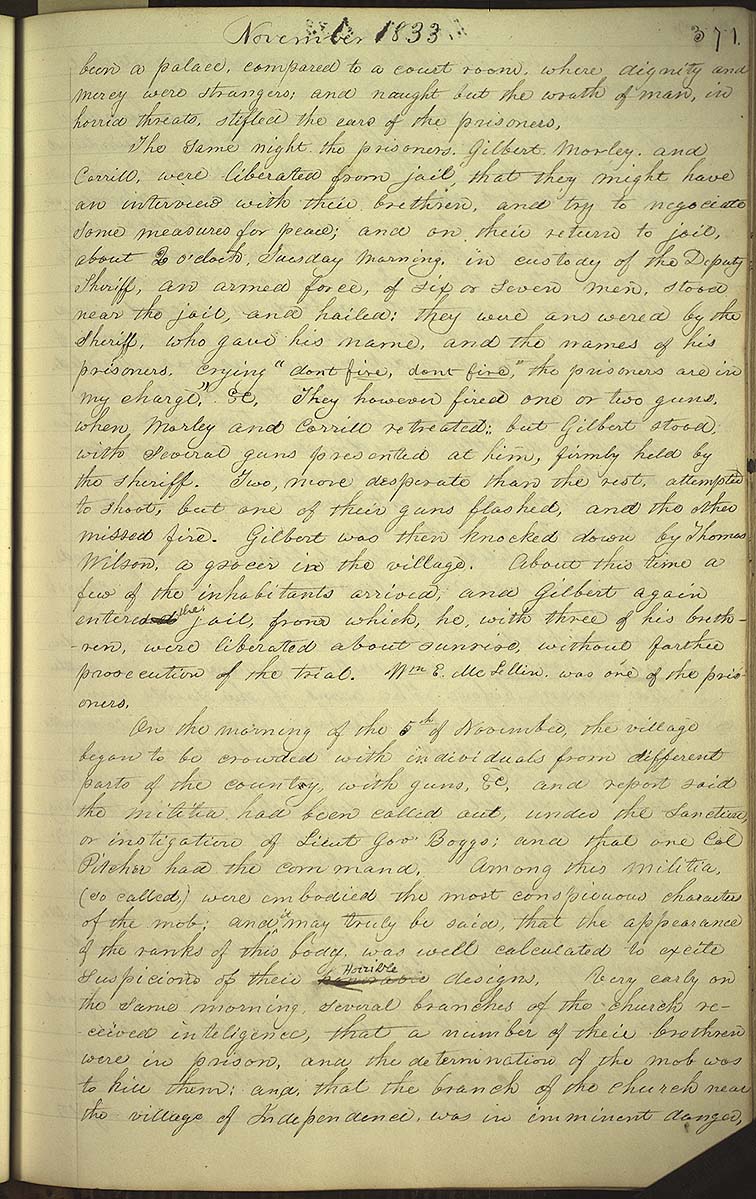 November 1833.
371.
been a palace, compared to a court room, where dignity and
mercy were strangers; and naught but the wrath of man, in
horrid threats, stifled the ears of the prisoners,
The same night the prisoners, Gilbert, Morley, and
Corrill, were liberated from jail, that they might have
an interview with their brethren, and try to negociate
some measures for peace; and on their return to jail,
about 2 o'clock, Tuesday morning, in custody of the Deputy
Sheriff, an armed force, of six or seven men, stood
near the jail, and hailed: they were answered by the
sheriff, who gave his name, and the names of his
prisoners, crying "dont fire, dont fire," the prisoners are in
my charge," &C, They however fired one or two guns,
when Morley and Corrill retreated; but Gilbert stood,
with several guns presented at him, firmly held by
the sheriff. Two, more desperate than the rest, attempted
to shoot, but one of their guns flashed, and the other
missed fire. Gilbert was then knocked down by Thomas
Wilson, a grocer in the village. About this time a
few of the inhabitants arrived, and Gilbert again
entered the jail, from which, he, with three of his breth-
-ren, were liberated about sunrise, without farther
prosecution of the trial. Wm E. McLellin, was one of the pris-
oners.
On the morning of the 5th of November, the village
began to be crowded with individuals from different
parts of the country, with guns, &C, and report said
the militia had been called out, under the sanction,
or instigation of Lieut Gov Boggs; and that one Col
Pitcher had the command. Among this militia,
(so called,) were embodied the most conspicuous characters
of the mob; and it may truly be said, that the appearance
of the ranks of this body, was well calculated to excite
suspicions of their Horrible designs, Very early on
the same morning, several branches of the church re-
-ceived inteligence, that a number of their brethren
were in prison, and the determination of the mob was
to kill them; and, that the branch of the church near
the village of Independence, was in imminent danger,